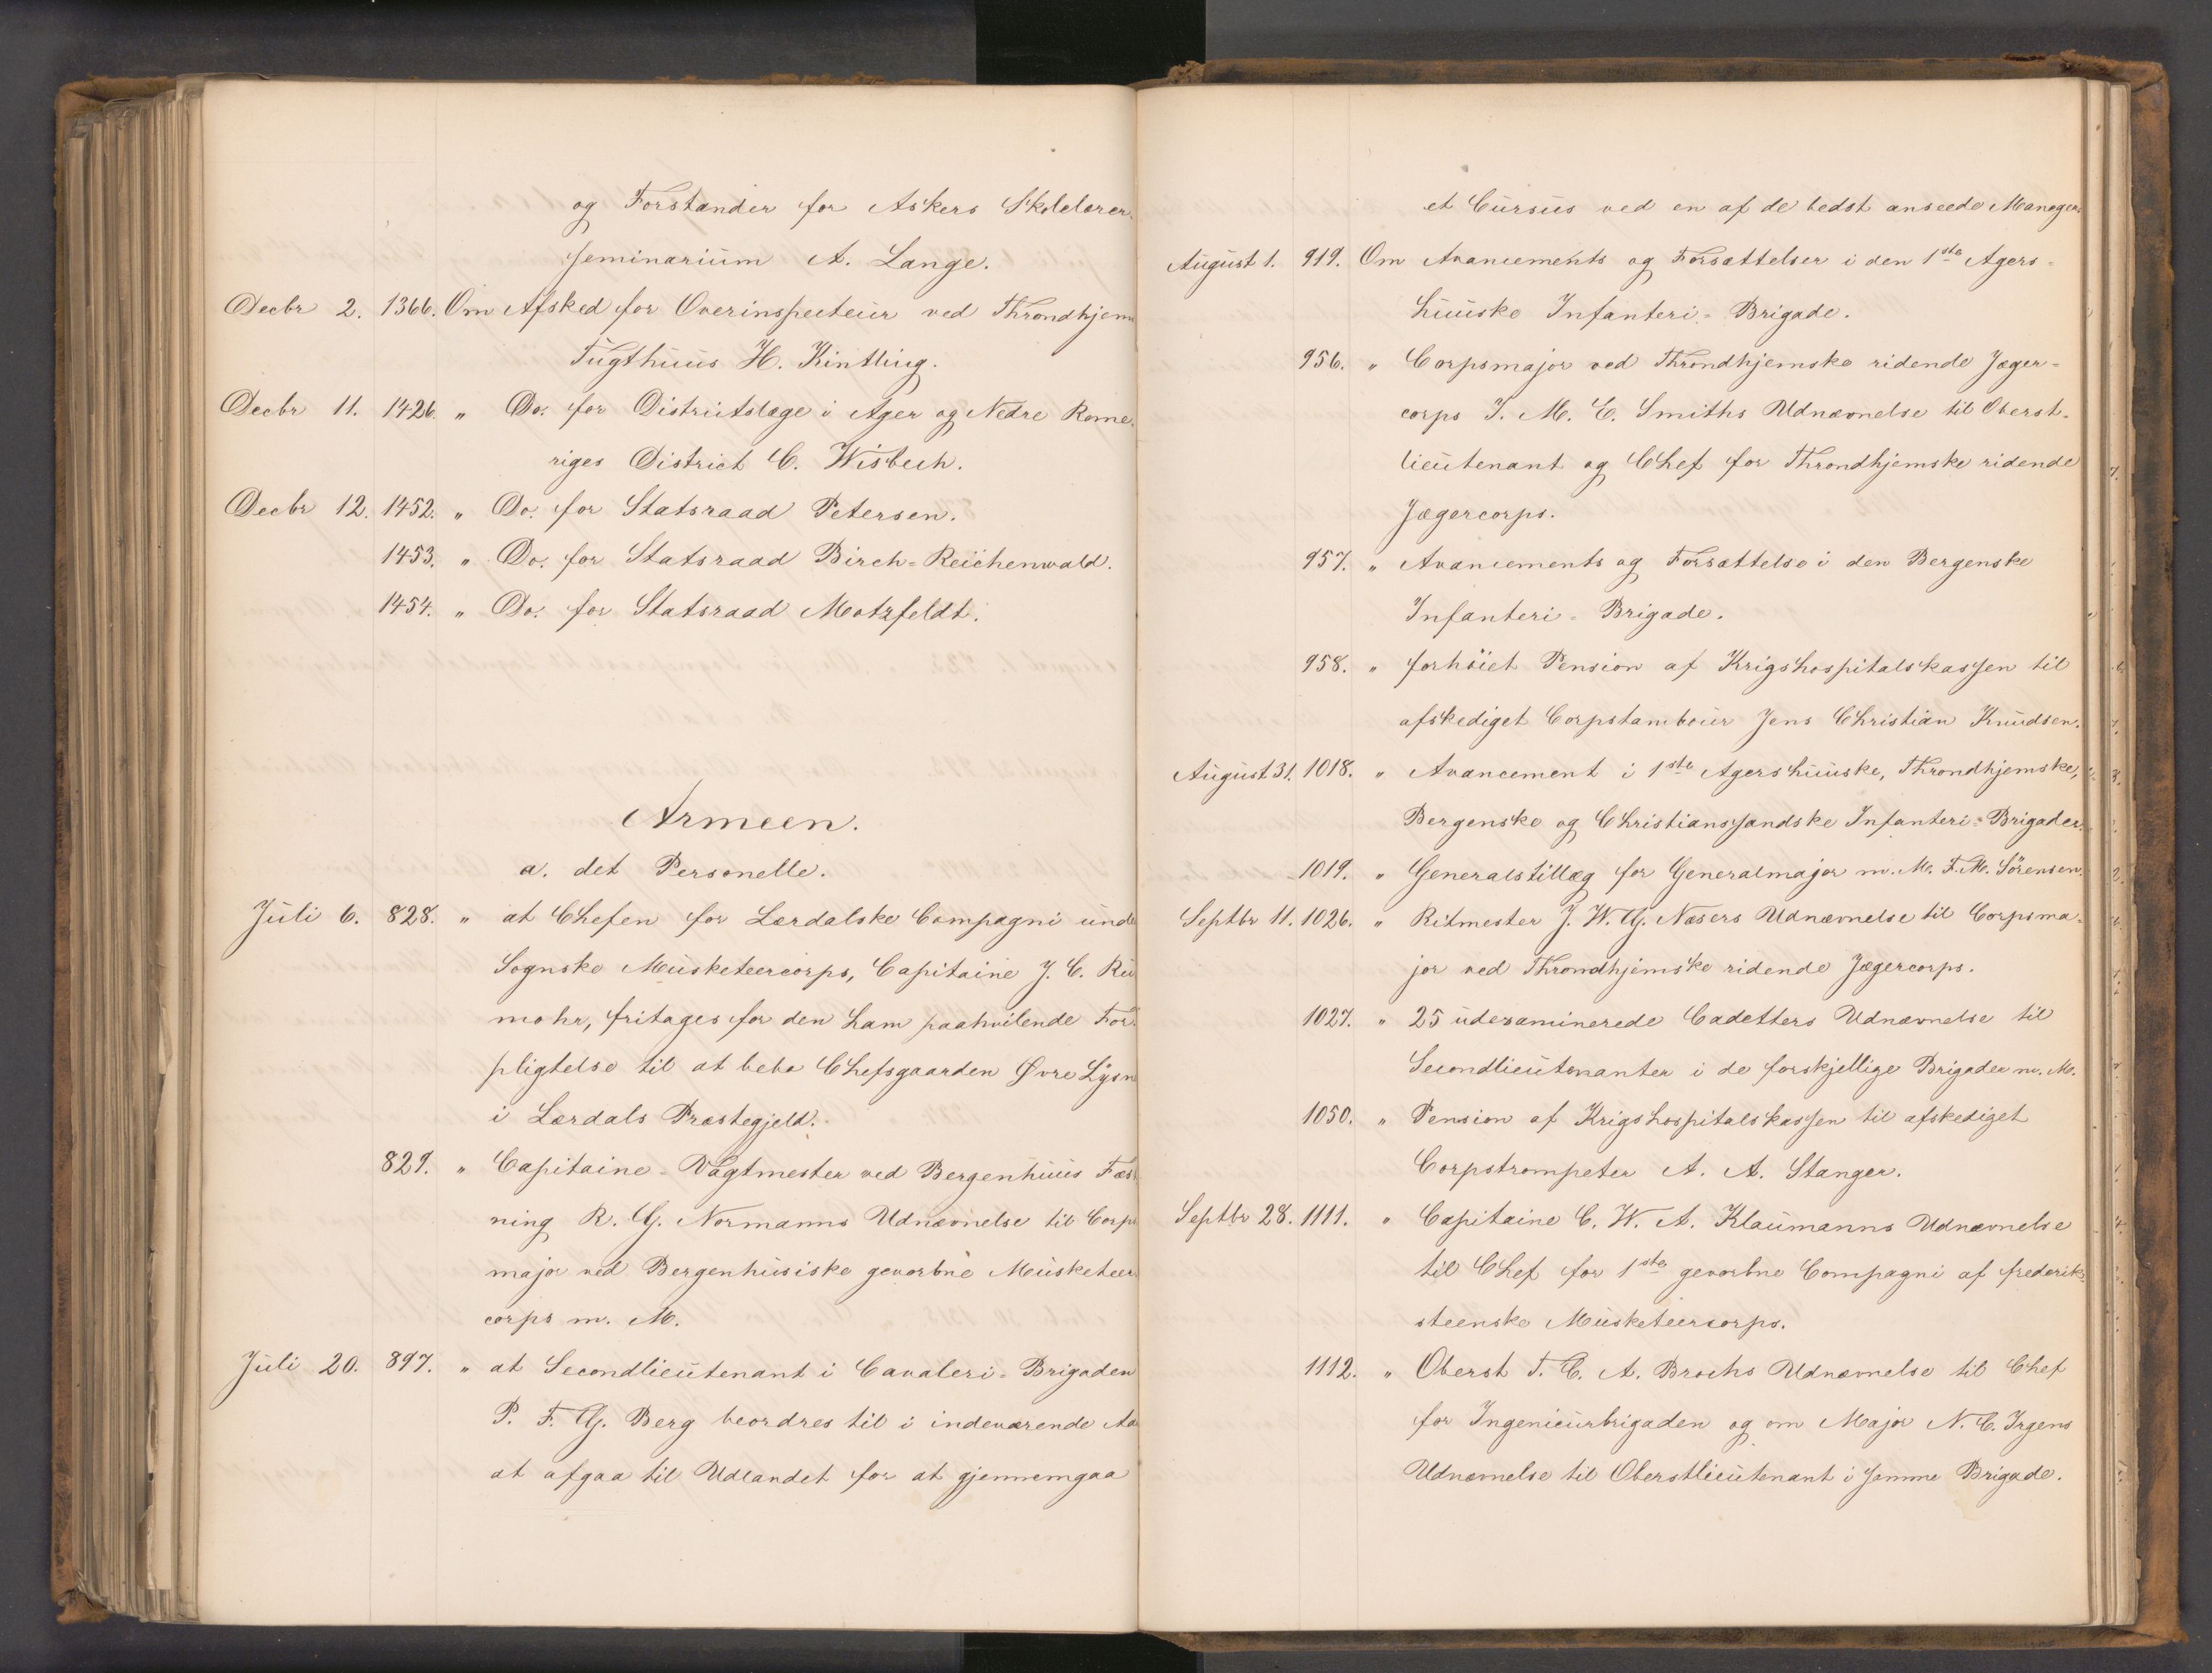 og Forstander for Askers Skolelærer-
seminarium A. Lange.
Decbr 2. 1366. Om Afsked for Overinspecteur ved Throndhjems
Tugthuus H. Kintling.
Decbr 11. 1426. " Do. for Districtslæge i Ager og Nedre Rome-
riges District C. Wisbech.
Decbr 12. 1452. " Do. for Statsraad Petersen.
1453. " Do. for Statsraad Birch-Reichenwald.
1454. " Do. for Statsraad Motzfeldt.
Armeen.
a. det Personelle.
Juli 6. 828. " at Chefen for Lærdalske Compagni unde
Sognske Musketeercorps, Capitaine J. C. Ru
mohr, fritages for den ham paahvilende For-
pligtelse til at bebo Chefsgaarden Øvre Lysn
i Lærdals Præstegjeld.
829. " Capitaine-Vagtmester ved Bergenhuus Fæst
ning R. G. Normanns Udnævnelse til Corps
major ved Bergenhusiske gevorbne Musketeer
corps m. M.
Juli 20. 897. " at Secondlieutenant i Cavaleri-Brigaden
P. F. G. Berg beordres til i indeværende Aa
at afgaa til Udlandet for at gjennemgaa
et Cursus ved en af de bedst anseede Maneger.
August 1. 919. Om Avancements og Forsættelser i den 1ste Agers-
huuske Infanteri-Brigade.
956. " Corpsmajor ved Throndhjemske ridende Jæger-
corps J. M. C. Smiths Udnævnelse til Oberst-
lieutenant og Chef for Throndhjemske ridende
Jægercorps.
957. " Avancements og Forsættelse i den Bergenske
Infanteri-Brigade.
958. " forhöiet Pension af Krigshospitalskassen til
afskediget Corpstambour Jens Christian Knudsen.
August 31. 1018. " Avancement i 1ste Agershuuske, Throndhjemske,
Bergenske og Christianssandske Infanteri-Brigader.
1019. " Generalstillæg for Generalmajor m. M. F. M. Sörensen.
Septbr 11. 1026. " Ritmester J. W. G. Næsers Udnævnelse til Corpsma-
jor ved Throndhjemske ridende Jægercorps.
1027. " 25 udexaminerede Cadetters Udnævnelse til
Secondlieutenanter i de forskjellige Brigader m. M.
1050. " Pension af Krigshospitalskassen til afskediget
Corpstrompeter A. A. Stanger.
Septbr 28. 1111. " Capitaine C. W. A. Klaumanns Udnævnelse
til Chef for 1ste gevorbne Compagni af frederik-
steenske Musketeercorps.
1112. " Oberst T. C. A. Brochs Udnævnelse til Chef
for Ingenieurbrigaden og om Major N. C. Irgens
Udnævnelse til Oberstlieutenant i samme Brigade.